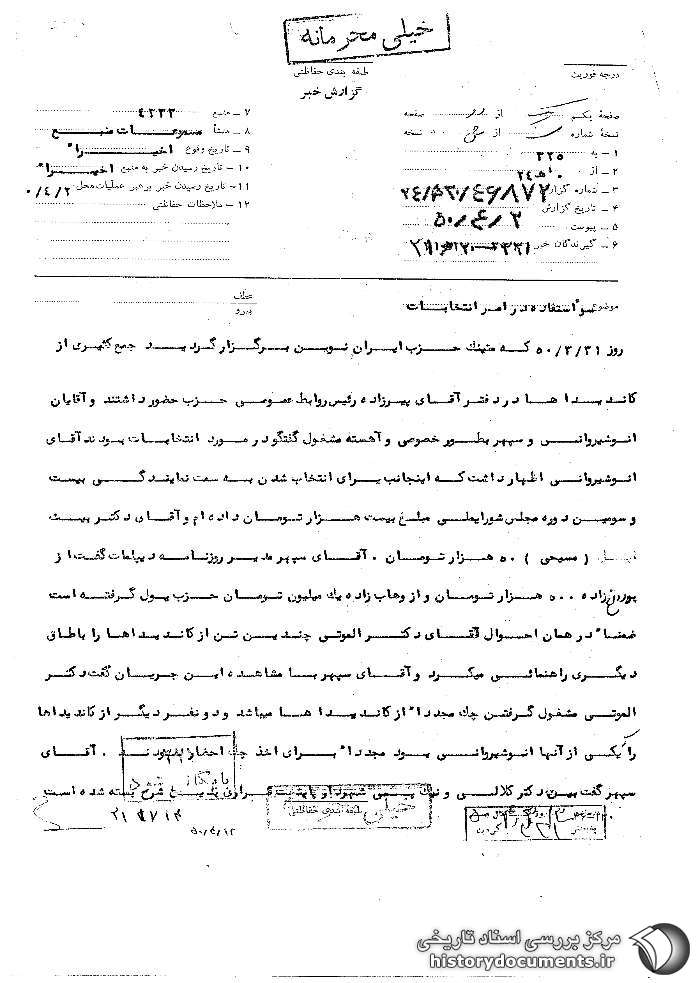 خیلی محرمانه
طبقه بندی حفاظتی
درجه فوریت
گزارش خبر
صفحه یکم از صفحه
نسخه شماره از نسخه
۱ – به ۳۲۵
۲ – از ۲۴ ه‍ ۱۰
۳ – شماره گزارش
۴ – تاریخ گزارش ۵۰/۴/۲
۵ – پیوست
۶ – گیرندگان خبر
۷ – منبع ۴۲۳۳
۸ – منشأ مسموعات منبع
۹ – تاریخ وقوع اخیراً
۱۰ – تاریخ رسیدن خبر به منبع اخیراً
۱۱ – تاریخ رسیدن خبر برهبر عملیات محل ۰/۴/۲
۱۲ – ملاحظات حفاظتی
موضوع سوء استفاده در امر انتخابات
عطف
پیرو
روز ۵۰/۳/۳۱ که متینگ حزب ایران نوین برگزار گردید جمع کثیری از
کاندیدا ها در دفتر آقای پیرزاده رئیس روابط عمومی حزب حضور داشتند و آقایان
انوشیروانی و سپهر بطور خصوصی و آهسته مشغول گفتگو در مورد انتخابات بودند آقای
انوشیروانی اظهار داشت که اینجانب برای انتخاب شدن به سمت نمایندگی بیست
و سومین دوره مجلس شورایملی مبلغ بیست هزار تومان داده ام و آقای دکتر بیت
( مسیحی ) ۵۰ هزار تومان . آقای سپهر مدیر روزنامه دیپلمات گفت از
زاده ۵۰۰ هزار تومان و از وهاب زاده یک میلیون تومان حزب پول گرفته است
ضمناً در همان احوال آقای دکتر الموتی چندین تن از کاندیداها را باطاق
دیگری راهنمائی میکرد و آقای سپهر با مشاهده این جریان گفت دکتر
الموتی مشغول گرفتن چک مجدداً از کاندیدا ها میباشد و دو نفر دیگر از کاندیداها
را که یکی از آنها انوشیروانی بود مجدداً برای اخذ چک احضار نمودند . آقای
سپهر گفت بین دکتر کلالی و فرح بسته شده است
بایگانی شود
خیلی
طبقه بندی حفاظتی
۵۰/۴/۱۲
مرکز بررسی اسناد تاریخی
historydocuments.ir